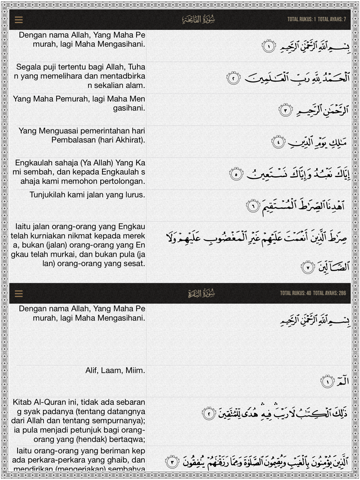 سُورَةُ الفَاتِحَةِ
TOTAL RUKUS: 1 TOTAL AYAHS: 7
Dengan nama Allah, Yang Maha Pe
murah, lagi Maha Mengasihani.
بِسْمِ ٱللَّهِ ٱلرَّحْمَٰنِ ٱلرَّحِيمِ ١
Segala puji tertentu bagi Allah, Tuha
n yang memelihara dan mentadbirka
n sekalian alam.
ٱلْحَمْدُ لِلَّهِ رَبِّ ٱلْعَٰلَمِينَ ٢
Yang Maha Pemurah, lagi Maha Men
gasihani.
ٱلرَّحْمَٰنِ ٱلرَّحِيمِ ٣
Yang Menguasai pemerintahan hari
Pembalasan (hari Akhirat).
مَٰلِكِ يَوْمِ ٱلدِّينِ ٤
Engkaulah sahaja (Ya Allah) Yang Ka
mi sembah, dan kepada Engkaulah s
ahaja kami memohon pertolongan.
إِيَّاكَ نَعْبُدُ وَإِيَّاكَ نَسْتَعِينُ ٥
Tunjukilah kami jalan yang lurus.
ٱهْدِنَا ٱلصِّرَٰطَ ٱلْمُسْتَقِيمَ ٦
Iaitu jalan orang-orang yang Engkau
telah kurniakan nikmat kepada merek
a, bukan (jalan) orang-orang yang En
gkau telah murkai, dan bukan pula (ja
lan) orang-orang yang sesat.
صِرَٰطَ ٱلَّذِينَ أَنْعَمْتَ عَلَيْهِمْ غَيْرِ ٱلْمَغْضُوبِ عَلَيْهِمْ وَلَا
ٱلضَّآلِّينَ ٧
سُورَةُ البَقَرَةِ
TOTAL RUKUS: 40 TOTAL AYAHS: 286
Dengan nama Allah, Yang Maha Pe
murah, lagi Maha Mengasihani.
بِسْمِ ٱللَّهِ ٱلرَّحْمَٰنِ ٱلرَّحِيمِ
Alif, Laam, Miim.
الٓمٓ ١
Kitab Al-Quran ini, tidak ada sebaran
g syak padanya (tentang datangnya
dari Allah dan tentang sempurnanya);
ia pula menjadi petunjuk bagi orang-
orang yang (hendak) bertaqwa;
ذَٰلِكَ ٱلْكِتَٰبُ لَا رَيْبَ ۛ فِيهِ ۛ هُدًى لِّلْمُتَّقِينَ ٢
Iaitu orang-orang yang beriman kep
ada perkara-perkara yang ghaib, dan
mendirikan (mengerjakan) sembahya
ٱلَّذِينَ يُؤْمِنُونَ بِٱلْغَيْبِ وَيُقِيمُونَ ٱلصَّلَوٰةَ وَمِمَّا رَزَقْنَٰهُمْ يُنفِقُونَ ٣